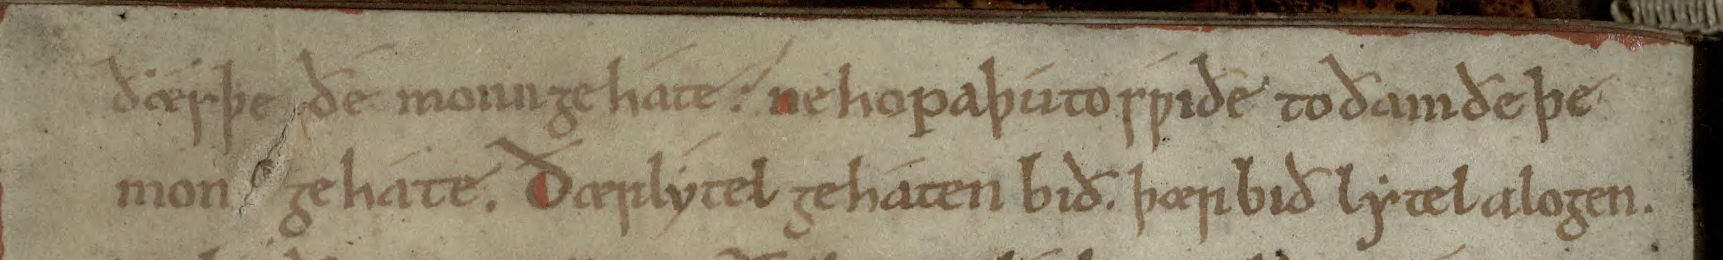 ðæs þe ðe monn gehate. ne hopa þu to swiðe to ðam ðe þe
mon gehate. Ðær lytel gehaten bið. þær bið lytel alogen.